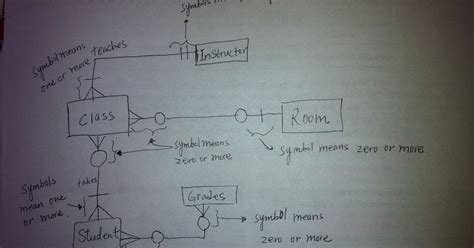 symbols
symbol means
one or more
teaches
Instructor
Class
Room
symbol means
zero or more.
symbol means zero or more.
symbols
mean one
or more.
takes
Grades
symbol means
zero or more.
Student